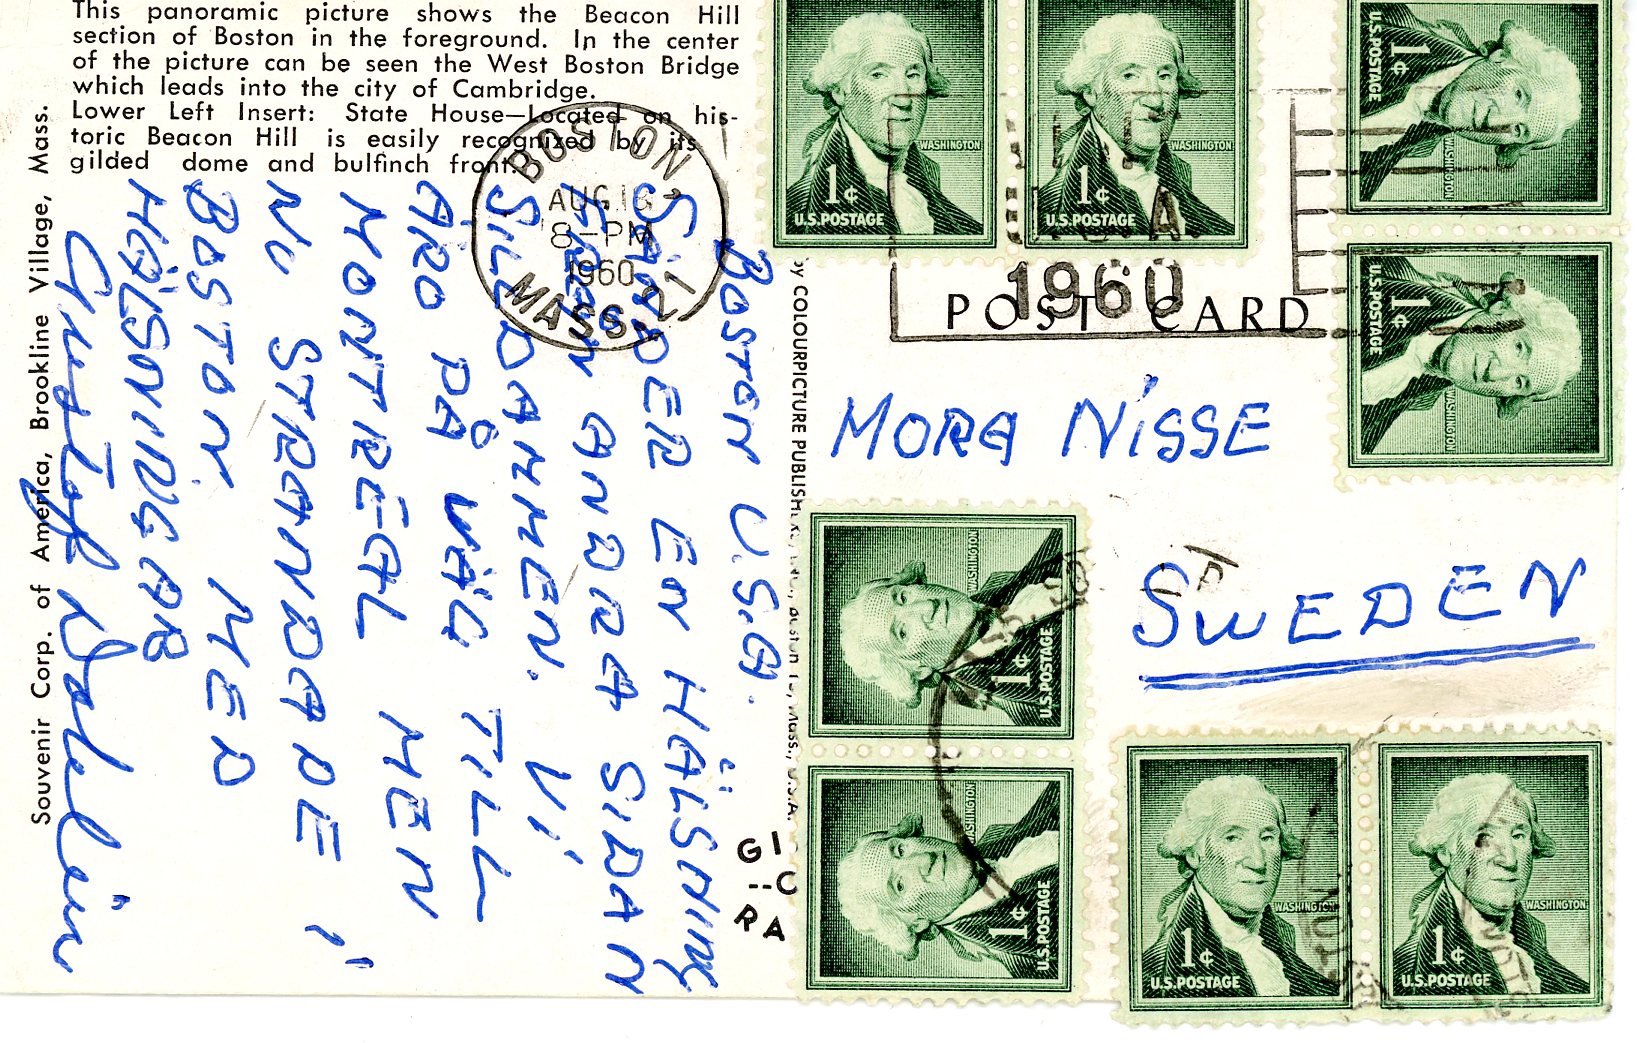 This panoramic picture shows the Beacon Hill
section of Boston in the foreground. In the center
of the picture can be seen the West Boston Bridge
which leads into the city of Cambridge.
Lower Left Insert: State House—Located on his-
toric Beacon Hill is easily recognized by its
gilded dome and bulfinch front.
Souvenir Corp. of America, Brookline Village, Mass.
BOSTON
AUG 16
8-PM
1960
MASS.
BOSTON U.S.A.
SÄNDER EN HÄLSNING
FRÅN ANDRA SIDAN
SILLDAMMEN. VI
ARO PÅ VÄG TILL
MONTREAL MEN
NU STRANDADE I
BOSTON MED
HÄLSNINGAR
Gustaf
by COLOURPICTURE PUBLISH
POST CARD
1960
MORA NISSE
SWEDEN
GI
--C
RA
WASHINGTON
1¢
U.S. POSTAGE
WASHINGTON
1¢
U.S. POSTAGE
WASHINGTON
1¢
U.S. POSTAGE
WASHINGTON
1¢
U.S. POSTAGE
WASHINGTON
1¢
U.S. POSTAGE
WASHINGTON
1¢
U.S. POSTAGE
WASHINGTON
1¢
U.S. POSTAGE
WASHINGTON
1¢
U.S. POSTAGE